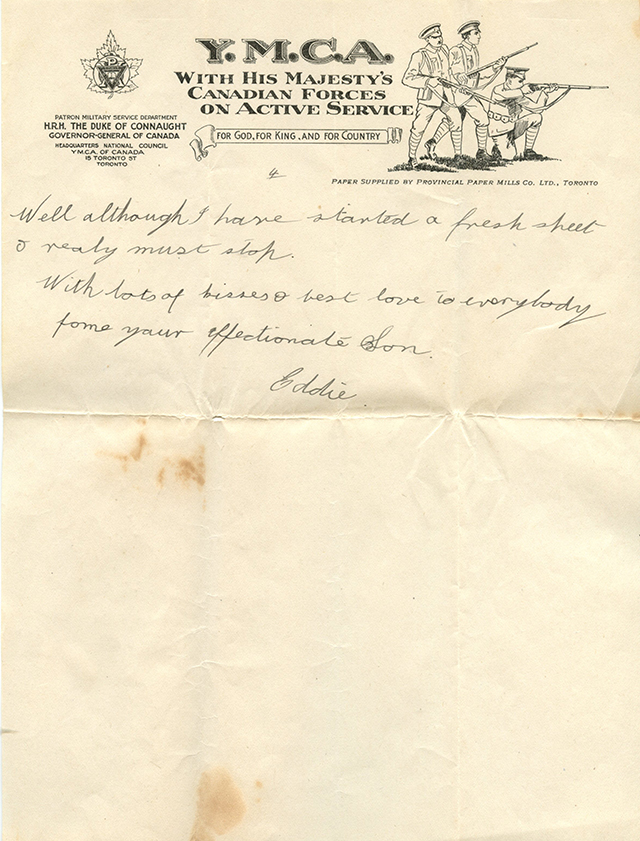 Y.M.C.A.
WITH HIS MAJESTY'S
CANADIAN FORCES
ON ACTIVE SERVICE
FOR GOD, FOR KING, AND FOR COUNTRY
PATRON MILITARY SERVICE DEPARTMENT
H.R.H. THE DUKE OF CONNAUGHT
GOVERNOR-GENERAL OF CANADA
HEADQUARTERS NATIONAL COUNCIL
Y.M.C.A. OF CANADA
15 TORONTO ST
TORONTO
PAPER SUPPLIED BY PROVINCIAL PAPER MILLS CO. LTD., TORONTO
4
Well although I have started a fresh sheet
I realy must stop.
With lots of kisses & best love to everybody
fome your affectionate Son.
Eddie.